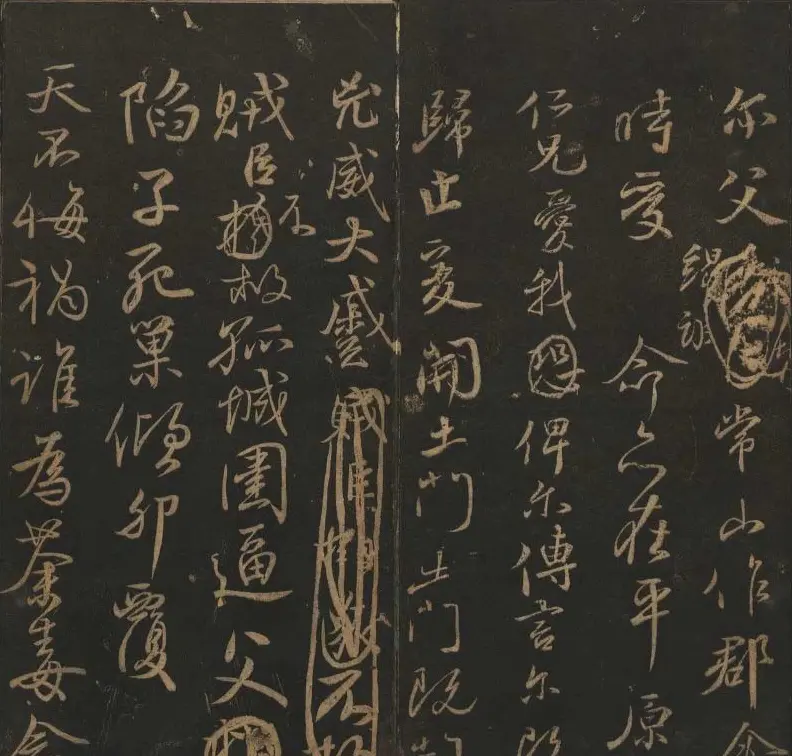 尔父竭誠常山作郡余
時受命亦在平原
仁兄愛我俾尔傳言尔既
歸止爰開土門土門既
兇威大蹙賊臣擁
賊臣不救孤城圍逼父
陷子死巢傾卵覆
天不悔禍誰為荼毒念